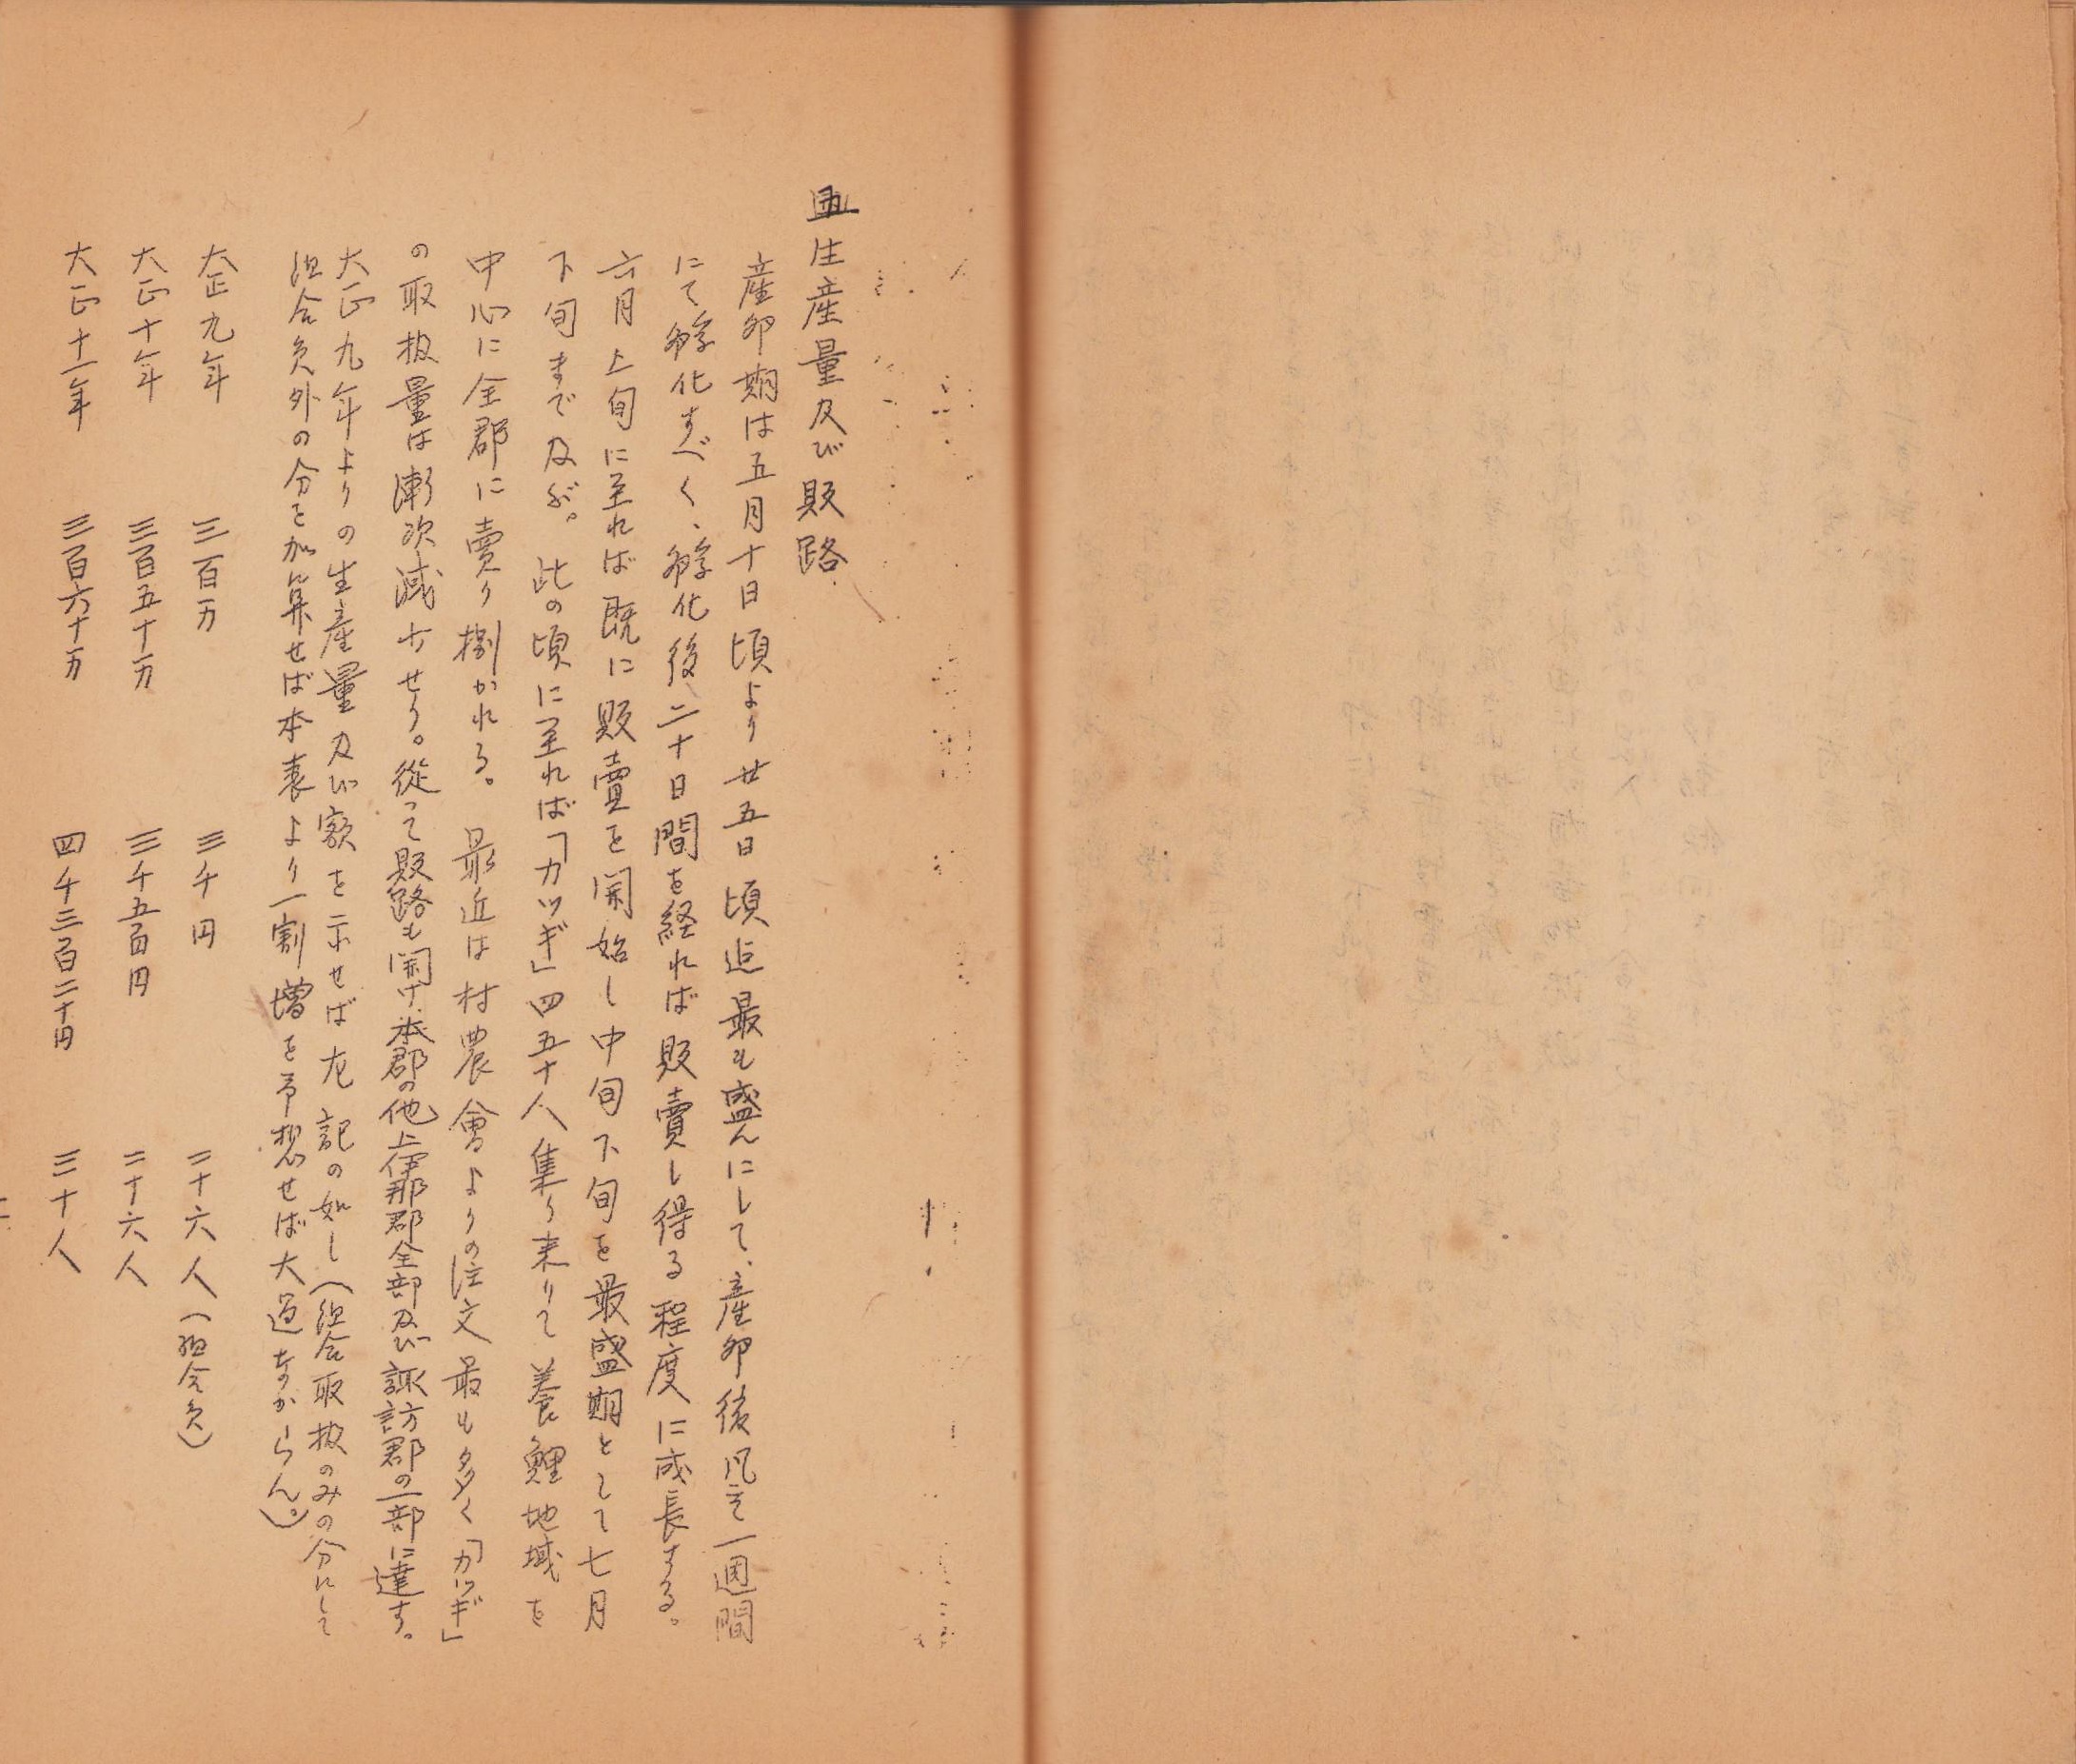 五 生産量及び販路
産卵期は五月十日頃より廿五日頃迄最も盛んにして、産卵後凡そ一週間
にて孵化すべく、孵化後二十日間を経れば販賣し得る程度に成長する。
六月上旬に至れば既に販賣を開始し中旬下旬を最盛期として七月
下旬まで及ぶ。此の頃に至れば「カツギ」四五十人集り来りて養鯉地域を
中心に全郡に賣り捌かれる。最近は村農會よりの注文最も多く「カツギ」
の取扱量は漸次減少せり。從って販路も開け本郡の他上伊那郡全部及び諏訪郡の一部に達す。
大正九年よりの生産量及び額を示せば左記の如し(組合取扱のみの分にして
組合員外の分を加算せば本表より一割増を予想せば大過なからん。)
大正九年 三百万 三千円 二十六人(組合員)
大正十年 三百五十万 三千五百円 二十六人
大正十一年 三百六十万 四千三百二十円 三十人